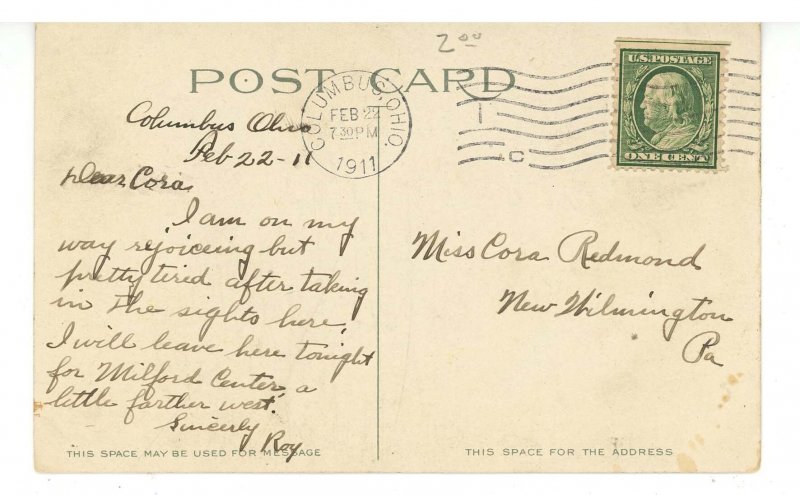 2.00
POST CARD
COLUMBUS, OHIO.
FEB 22
7.30 PM
1911
U.S. POSTAGE
ONE CENT
Columbus Ohio
Feb 22-11
Dear Cora
I am on my
way rejoiceing but
pretty tired after taking
in the sights here,
I will leave here tonight
for Milford Center, a
little farther west.
Sincerly
Roy
Miss Cora Redmond
New Wilmington
Pa
THIS SPACE MAY BE USED FOR MESSAGE
THIS SPACE FOR THE ADDRESS